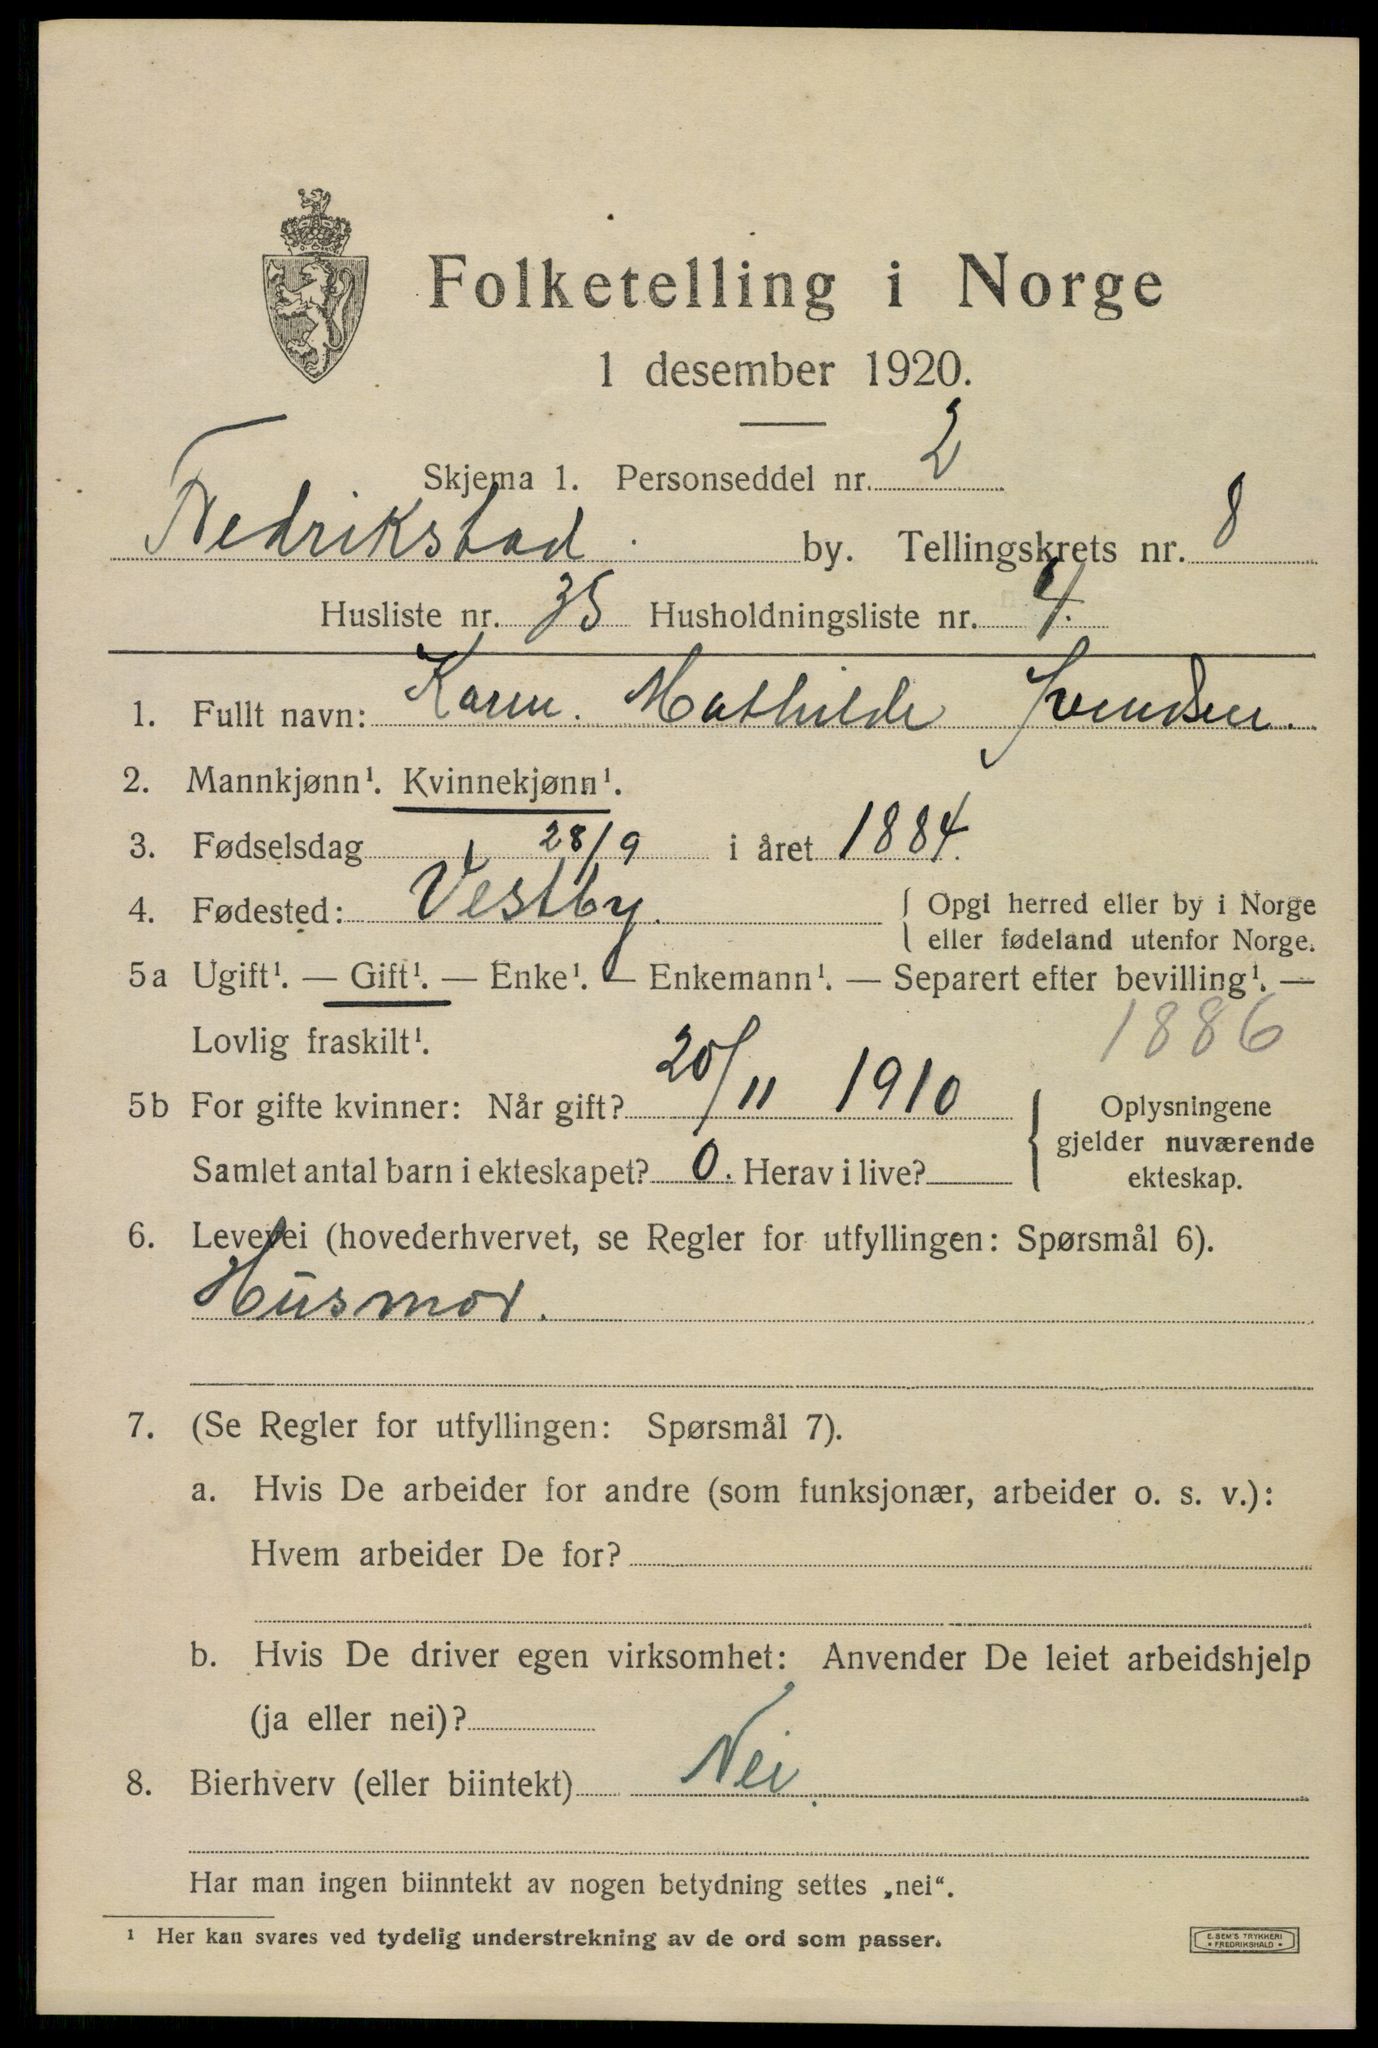 Folketelling i Norge
1 desember 1920.
Skjema 1. Personseddel nr. 2
Fredrikstad. by. Tellingskrets nr. 8
Husliste nr. 35 Husholdningsliste nr. 4.
1. Fullt navn: Karen. Mathilde Svendsen.
2. Mannkjønn¹. Kvinnekjønn¹.
3. Fødselsdag 28/9 i året 1884.
4. Fødested: Vestby. { Opgi herred eller by i Norge
eller fødeland utenfor Norge.
5a Ugift¹. — Gift¹. — Enke¹. — Enkemann¹. — Separert efter bevilling¹. —
Lovlig fraskilt¹. 1886
5b For gifte kvinner: Når gift? 20/11 1910 { Oplysningene
gjelder nuværende
Samlet antal barn i ekteskapet? 0. Herav i live?
ekteskap.
6. Levevei (hovederhvervet, se Regler for utfyllingen: Spørsmål 6).
Husmor.
7. (Se Regler for utfyllingen: Spørsmål 7).
a. Hvis De arbeider for andre (som funksjonær, arbeider o. s. v.):
Hvem arbeider De for?
b. Hvis De driver egen virksomhet: Anvender De leiet arbeidshjelp
(ja eller nei)?
8. Bierhverv (eller biintekt) Nei.
Har man ingen biinntekt av nogen betydning settes „nei“.
¹ Her kan svares ved tydelig understrekning av de ord som passer.
E. SEM'S TRYKKERI
• FREDRIKSHALD •